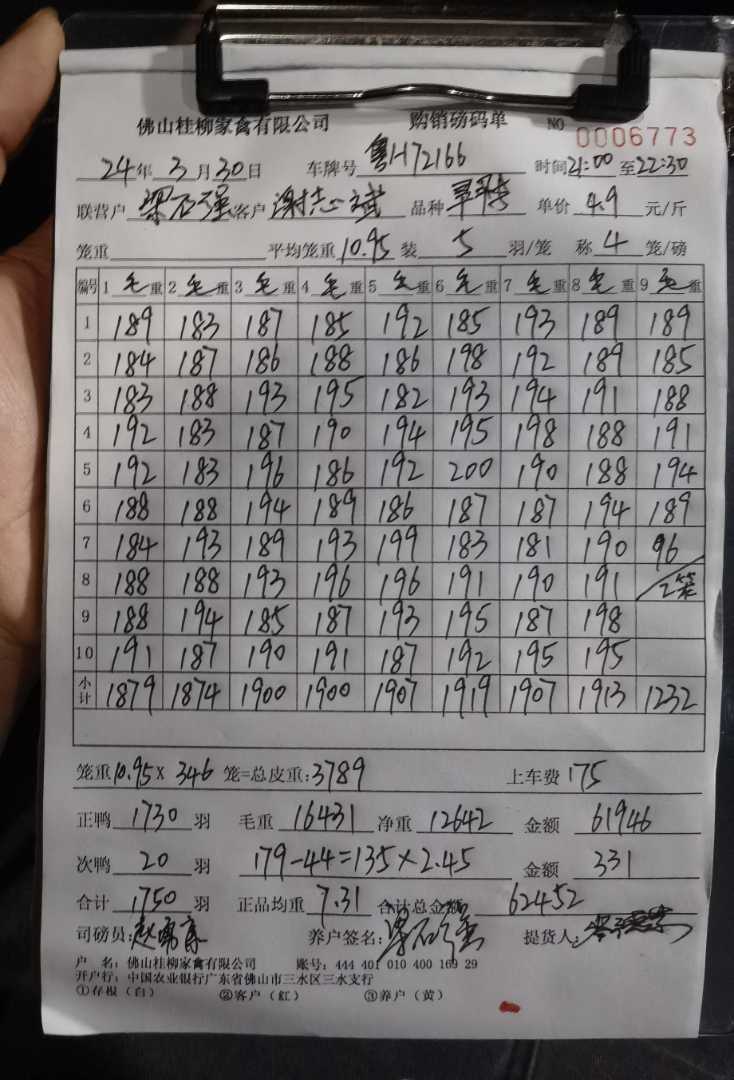 佛山桂柳家禽有限公司 购销磅码单 NO 0006773
24年3月30日 车牌号 粤H72166 时间21:00至22:30
联营户 梁石强 客户 谢志斌 品种 单价 4.9 元/斤
笼重 平均笼重10.95 装 5 羽/笼 称 4 笼/磅
编号 1 毛重 2 毛重 3 毛重 4 毛重 5 毛重 6 毛重 7 毛重 8 毛重 9 毛重
1 189 183 187 185 192 185 193 189 189
2 184 187 186 188 186 198 192 189 185
3 183 188 193 195 182 193 194 191 188
4 192 183 187 190 194 195 198 188 191
5 192 183 196 186 192 200 190 188 194
6 188 188 194 189 186 187 187 194 189
7 184 193 189 193 199 183 181 190 96
8 188 188 193 196 196 191 190 191 2笼
9 188 194 185 187 193 195 187 198
10 191 187 190 191 187 192 195 195
小计 1879 1874 1900 1900 1907 1919 1907 1913 1232
笼重10.95×346笼=总皮重:3789 上车费175
正鸭 1730 羽 毛重 16431 净重 12642 金额 61946
次鸭 20 羽 179-44=135×2.45 金额 331
合计 1750 羽 正品均重 7.31 合计总金额 62452
司磅员: 养户签名:梁石强 提货人:
户 名:佛山桂柳家禽有限公司 账号:444 401 010 400 169 29
开户行:中国农业银行广东省佛山市三水区三水支行
①存根(白) ②客户(红) ③养户(黄)